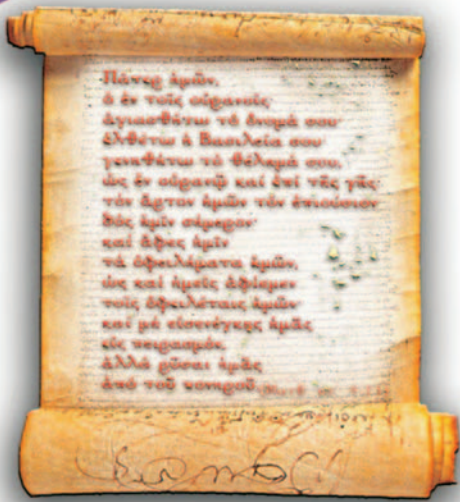 Πάτερ ἡμῶν,
ὁ ἐν τοῖς οὐρανοῖς·
ἁγιασθήτω τό ὄνομά σου·
ἐλθέτω ἡ Βασιλεία σου
γενηθήτω τό θέλημά σου,
ὡς ἐν οὐρανῷ καί ἐπί τῆς γῆς·
τόν ἄρτον ἡμῶν τόν ἐπιούσιον
δός ἡμῖν σήμερον·
καί ἄφες ἡμῖν
τά ὀφειλήματα ἡμῶν,
ὡς καί ἡμεῖς ἀφίεμεν
τοῖς ὀφειλέταις ἡμῶν·
καί μή εἰσενέγκῃς ἡμᾶς
εἰς πειρασμόν,
ἀλλά ῥῦσαι ἡμᾶς
ἀπό τοῦ πονηροῦ.